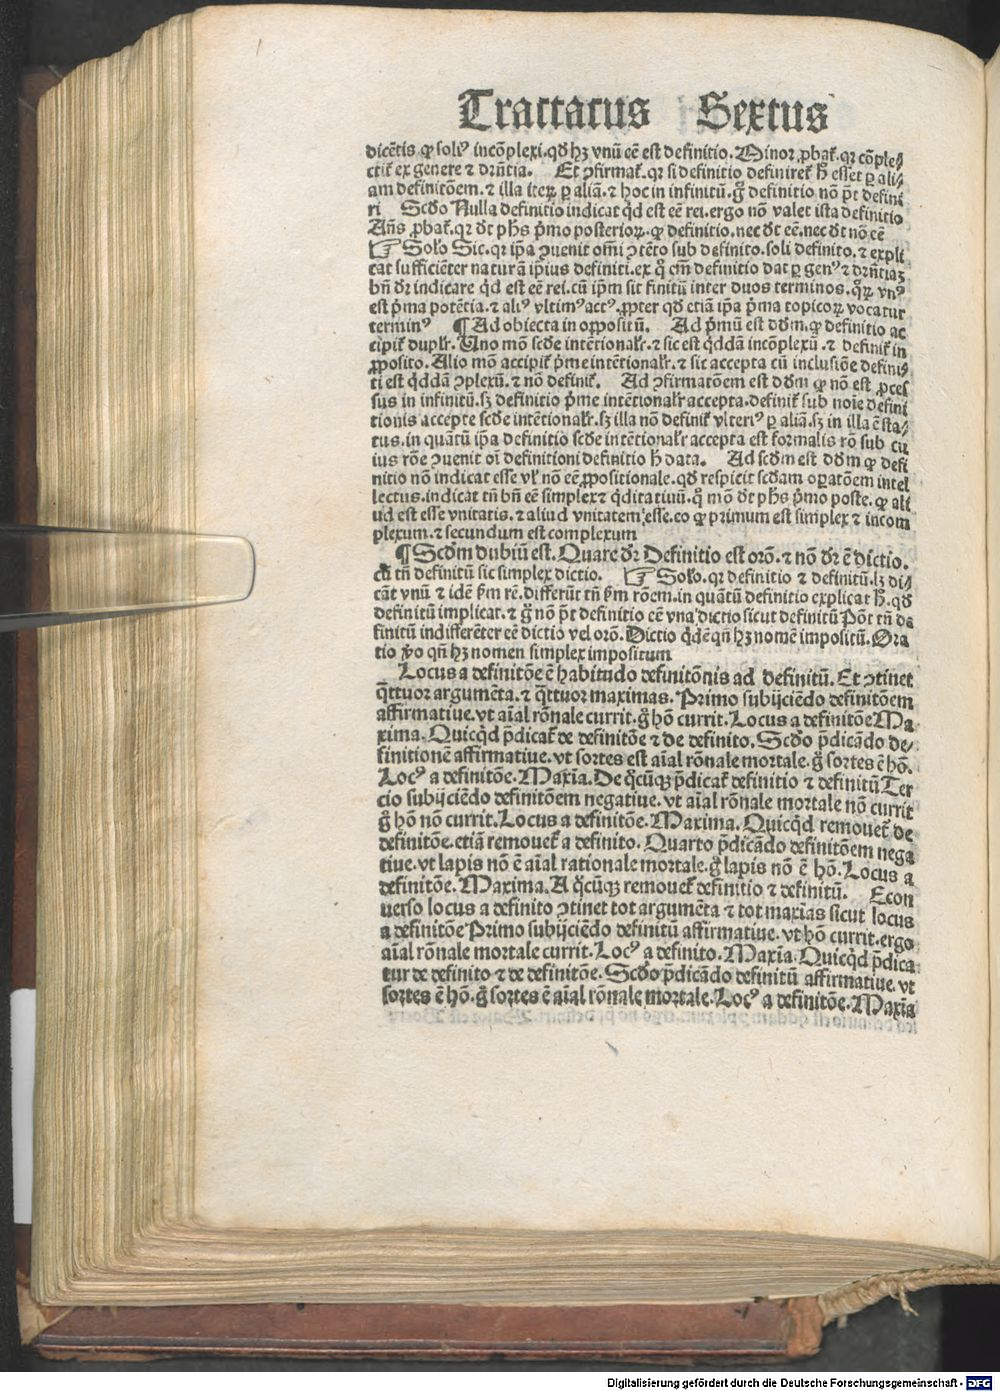 Tractatus Sextus
dicẽtis ꝙ solius incõplexi.qd̃ hꝫ vnũ eẽ est definitio.Minor ꝓbat̃.qꝛ cõple⸗
ctit̃ ex genere ⁊ drñtia. Et ꝯfirmat̃.qꝛ si definitio definiret̃ h̃ esset ꝑ ali⸗
am definitõem.⁊ illa iteꝝ ꝑ aliã.⁊ hoc in infinitũ.g̃ definitio nõ p̃t defini
ri Scd̃o Nulla definitio indicat qd̃ est eẽ rei.ergo nõ valet ista definitio
Añs ꝓbat̃.qꝛ dt̃ ph̃s p̃mo posterioꝝ.ꝙ definitio.nec dt̃ eẽ.nec dt̃ nõ eẽ
☞ Solo Sic.qꝛ ip̃a ꝯuenit om̃i ꝯtẽto sub definito.soli definito.⁊ expli
cat sufficiẽter naturã ip̃ius definiti.ex q̃ cm̃ definitio dat̃ ꝑ genꝰ ⁊ drñtiaꝫ
bñ dr̃ indicare qd̃ est eẽ rei.cũ ip̃m sit finitũ inter duos terminos.q̃ꝝ vnꝰ
est p̃ma potẽtia.⁊ aliꝰ vltimꝰ actꝰ.ꝓpter qd̃ etiã ip̃a p̃ma topicoꝝ vocatur
terminꝰ ¶ Ad obiecta in oppositũ. Ad p̃mũ est dd̃m.ꝙ definitio ac
cipit̃ dupl̃r.Uno mõ scd̃e intẽtionalr̃.⁊ sic est qd̃dã incõplexũ.⁊ definit̃ in
ꝓposito.Alio mõ accipit̃ p̃me intẽtionalr̃.⁊ sic accepta cũ inclusiõe defini⸗
ti est qd̃dã ꝯplexũ.⁊ nõ definit̃. Ad ꝯfirmatõem est dd̃m ꝙ nõ est ꝓces
sus in infinitũ.sꝫ definitio p̃me intẽtionalr̃ accepta.definit̃ sub noĩe defini
tionis accepte scd̃e intẽtionalr̃.sꝫ illa nõ definit̃ vlteriꝰ ꝑ aliã.sꝫ in illa ẽ sta⸗
tus.in quãtũ ip̃a definitio scd̃e intẽtionalr̃ accepta est formalis rõ sub cu
ius rõe ꝯuenit oĩ definitioni definitio h̃ data. Ad scd̃m est dd̃m ꝙ defi
nitio nõ indicat esse vl̃ nõ eẽ ꝓpositionale.qd̃ respicit scd̃am oꝑatõem intel
lectus.indicat tñ bñ eẽ simplex ⁊ qd̃itatiuũ.q̃ mõ dt̃ ph̃s p̃mo poste.ꝙ ali
ud est esse vnitatis.⁊ aliud vnitatem esse.eo ꝙ primum est simplex ⁊ incom
plexum.⁊ secundum est complexum
¶ Scd̃m dubiũ est.Quare dr̃ Definitio est orõ.⁊ nõ dr̃ ẽ dictio.
cũ tñ definitũ sic simplex dictio. ☞ Solo.qꝛ definitio ⁊ definitũ.lꝫ di⸗
cãt vnũ ⁊ idẽ ẞm rẽ.differũt tñ ẞm rõem.in quãtũ definitio explicat h̃.qd̃
definitũ implicat.⁊ g̃ nõ p̃t definitio eẽ vna dictio sicut definitũ Põt tñ de
finitũ indifferẽter eẽ dictio vel orõ.Dictio qd̃ẽ qñ hꝫ nomẽ impositũ.Ora
tio ꝟo qñ hꝫ nomen simplex impositum
Locus a definitõe ẽ habitudo definitõnis ad definitũ.Et ꝯtinet
q̃ttuor argumẽta.⁊ q̃ttuor maximas.Primo subijciẽdo definitõem
affirmatiue.vt aĩal rõnale currit.g̃ hõ currit.Locus a definitõe Ma
xima.Quicqd̃ p̃dicat̃ de definitõe ⁊ de definito.Scd̃o p̃dicãdo de⸗
finitionẽ affirmatiue.vt sortes est aĩal rõnale mortale.g̃ sortes ẽ hõ.
Locꝰ a definitõe.Maxĩa.De q̃cũqꝫ p̃dicat̃ definitio ⁊ definitũ Ter
cio subijciẽdo definitõem negatiue.vt aĩal rõnale mortale nõ currit
g̃ hõ nõ currit.Locus a definitõe.Maxima.Quicqd̃ remouet̃ de
definitõe.etiã remouet̃ a definito.Quarto p̃dicãdo definitõem nega
tiue.vt lapis nõ ẽ aĩal rationale mortale.g̃ lapis nõ ẽ hõ.Locus a
definitõe.Maxima.A q̃cũqꝫ remouet̃ definitio ⁊ definitũ. Econ
uerso locus a definito ꝯtinet tot argumẽta ⁊ tot maxĩas sicut locus
a definitõe Primo subijciẽdo definitũ affirmatiue.vt hõ currit.ergo
aĩal rõnale mortale currit.Locꝰ a definito.Maxĩa.Quicqd̃ p̃dica
tur de definito ⁊ de definitõe.Scd̃o p̃dicãdo definitũ affirmatiue.vt
sortes ẽ hõ.g̃ sortes ẽ aĩal rõnale mortale.Locꝰ a definitõe.Maxĩa
Digitalisierung gefördert durch die Deutsche Forschungsgemeinschaft - DFG